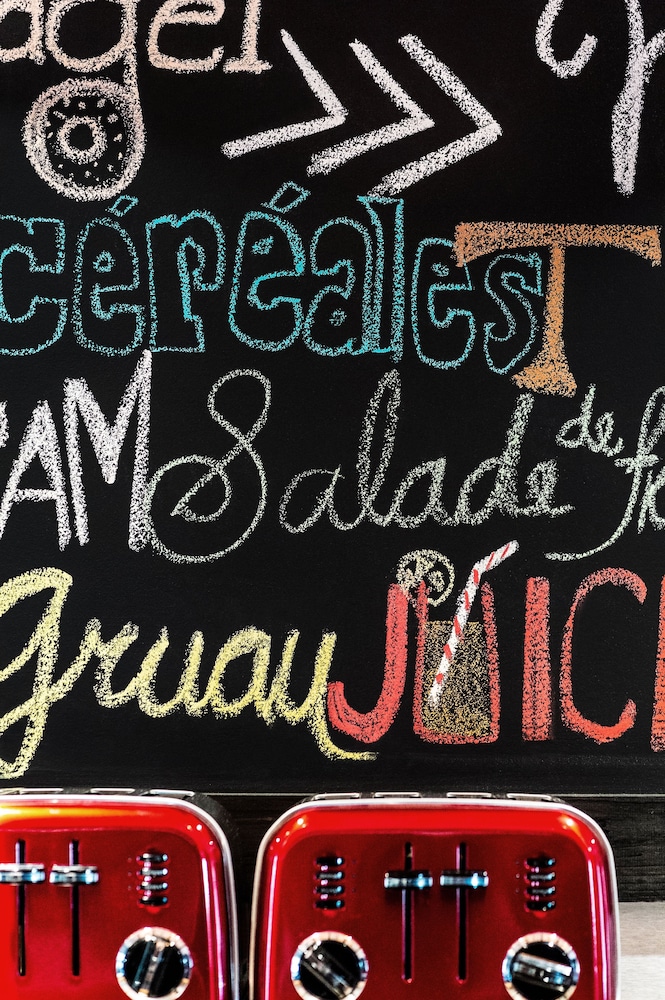 agel
céréales T
AM Salade de
gruau JUIC